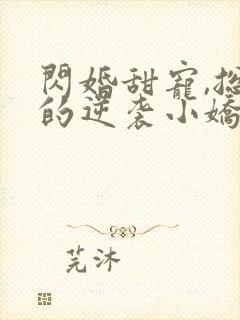 閃婚甜寵,總
的逆袭小嬌
芫沐